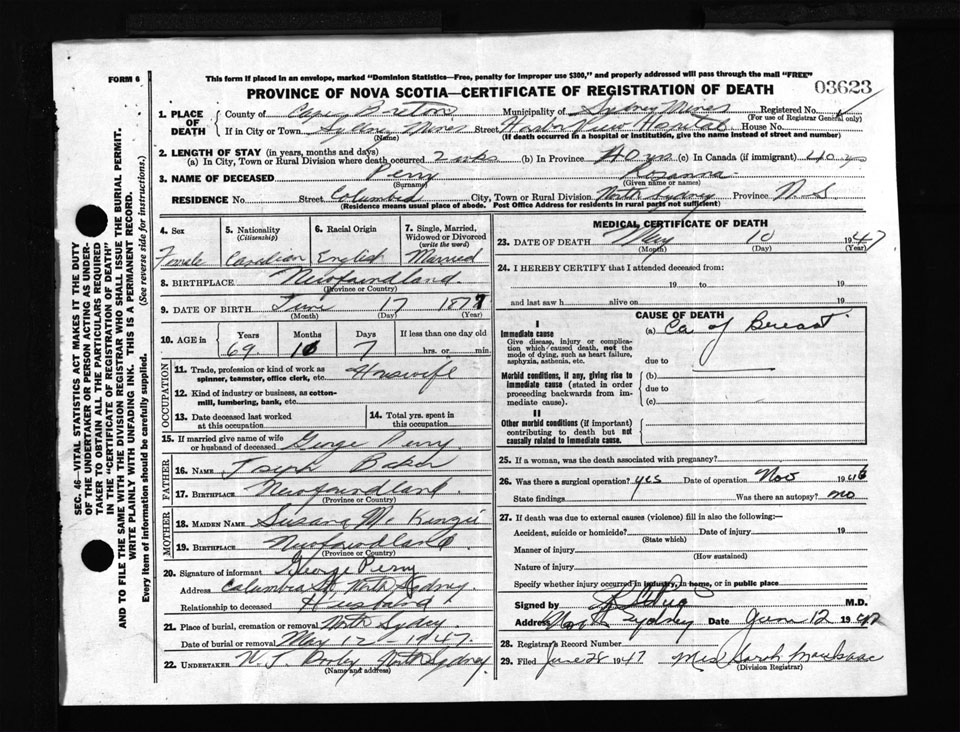 FORM 6
This form if placed in an envelope, marked "Dominion Statistics—Free, penalty for improper use $300," and properly addressed will pass through the mail "FREE"
03623
PROVINCE OF NOVA SCOTIA—CERTIFICATE OF REGISTRATION OF DEATH
1. PLACE OF DEATH
County of Cape Breton Municipality of Sydney Mines Registered No.
(For use of Registrar General only)
If in City or Town Sydney Mines Street Harbor View Hospital House No.
(Name) (If death occurred in a hospital or institution, give the name instead of street and number)
2. LENGTH OF STAY (in years, months and days)
(a) In City, Town or Rural Division where death occurred 2 wks (b) In Province 40 yrs (c) In Canada (if immigrant) 40 yrs
3. NAME OF DECEASED Perry Rosanna
(Surname) (Given name or names)
RESIDENCE No. Street Columbia City, Town or Rural Division North Sydney Province N.S
(Residence means usual place of abode. Post Office Address for residents in rural parts not sufficient)
4. Sex
Female
5. Nationality
(Citizenship)
Canadian
6. Racial Origin
English
7. Single, Married, Widowed or Divorced
(write the word)
Married
8. BIRTHPLACE Newfoundland
(Province or Country)
9. DATE OF BIRTH June 17 1877
(Month) (Day) (Year)
10. AGE in
Years Months Days If less than one day old
69 10 7 hrs. or min.
OCCUPATION
11. Trade, profession or kind of work as spinner, teamster, office clerk, etc. Houswife
12. Kind of industry or business, as cotton-mill, lumbering, bank, etc.
13. Date deceased last worked at this occupation
14. Total yrs. spent in this occupation
15. If married give name of wife or husband of deceased George Perry
FATHER
16. NAME Joseph Baker
17. BIRTHPLACE Newfoundland
(Province or Country)
MOTHER
18. MAIDEN NAME Susana Mc Kenzie
19. BIRTHPLACE Newfoundland
(Province or Country)
20. Signature of informant George Perry
Address Columbia St, North Sydney
Relationship to deceased Husband
21. Place of burial, cremation or removal North Sydney
Date of burial or removal May 12 - 1947.
22. UNDERTAKER W. J. North Sydney
(Name and address)
MEDICAL CERTIFICATE OF DEATH
23. DATE OF DEATH May 10 1947
(Month) (Day) (Year)
24. I HEREBY CERTIFY that I attended deceased from:
19 to 19
and last saw h alive on 19
CAUSE OF DEATH
I
Immediate cause
Give disease, injury or complication which caused death, not the mode of dying, such as heart failure, asphyxia, asthenia, etc.
(a) Ca of Breast
due to
Morbid conditions, if any, giving rise to immediate cause (stated in order proceeding backwards from immediate cause).
(b)
due to
(c)
II
Other morbid conditions (if important) contributing to death but not causally related to immediate cause.
25. If a woman, was the death associated with pregnancy?
26. Was there a surgical operation? yes Date of operation Nov 1946
State findings Was there an autopsy? no
27. If death was due to external causes (violence) fill in also the following:—
Accident, suicide or homicide? Date of injury 19
(State which)
Manner of injury
(How sustained)
Nature of injury
Specify whether injury occurred in industry, in home, or in public place
Signed by M.D.
Address North Sydney Date June 12 1947
28. Registrar's Record Number
29. Filed June 28 1947 Mrs Sarah MacIsaac
(Division Registrar)
SEC. 46—VITAL STATISTICS ACT MAKES IT THE DUTY
OF THE UNDERTAKER OR PERSON ACTING AS UNDER-
TAKER TO OBTAIN ALL THE PARTICULARS REQUIRED
IN THE "CERTIFICATE OF REGISTRATION OF DEATH"
AND TO FILE THE SAME WITH THE DIVISION REGISTRAR WHO SHALL ISSUE THE BURIAL PERMIT.
WRITE PLAINLY WITH UNFADING INK. THIS IS A PERMANENT RECORD.
Every item of information should be carefully supplied. (See reverse side for instructions.)